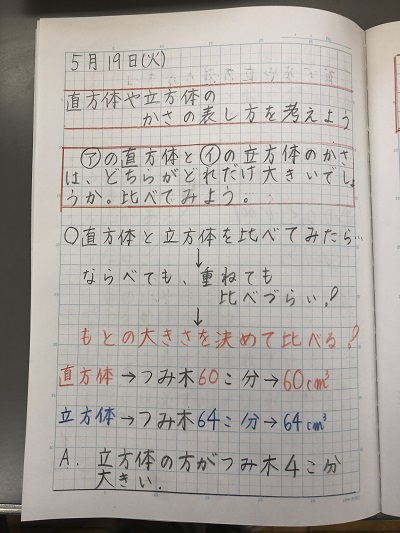 5月19日(火)
直方体や立方体の
かさの表し方を考えよう
㋐の直方体と㋑の立方体のかさ
は、どちらがどれだけ大きいでしょ
うか。比べてみよう。
○直方体と立方体を比べてみたら…
↓
ならべても、重ねても
比べづらい!
↓
もとの大きさを決めて比べる!
直方体→つみ木60こ分→60cm³
立方体→つみ木64こ分→64cm³
A. 立方体の方がつみ木4こ分
大きい.